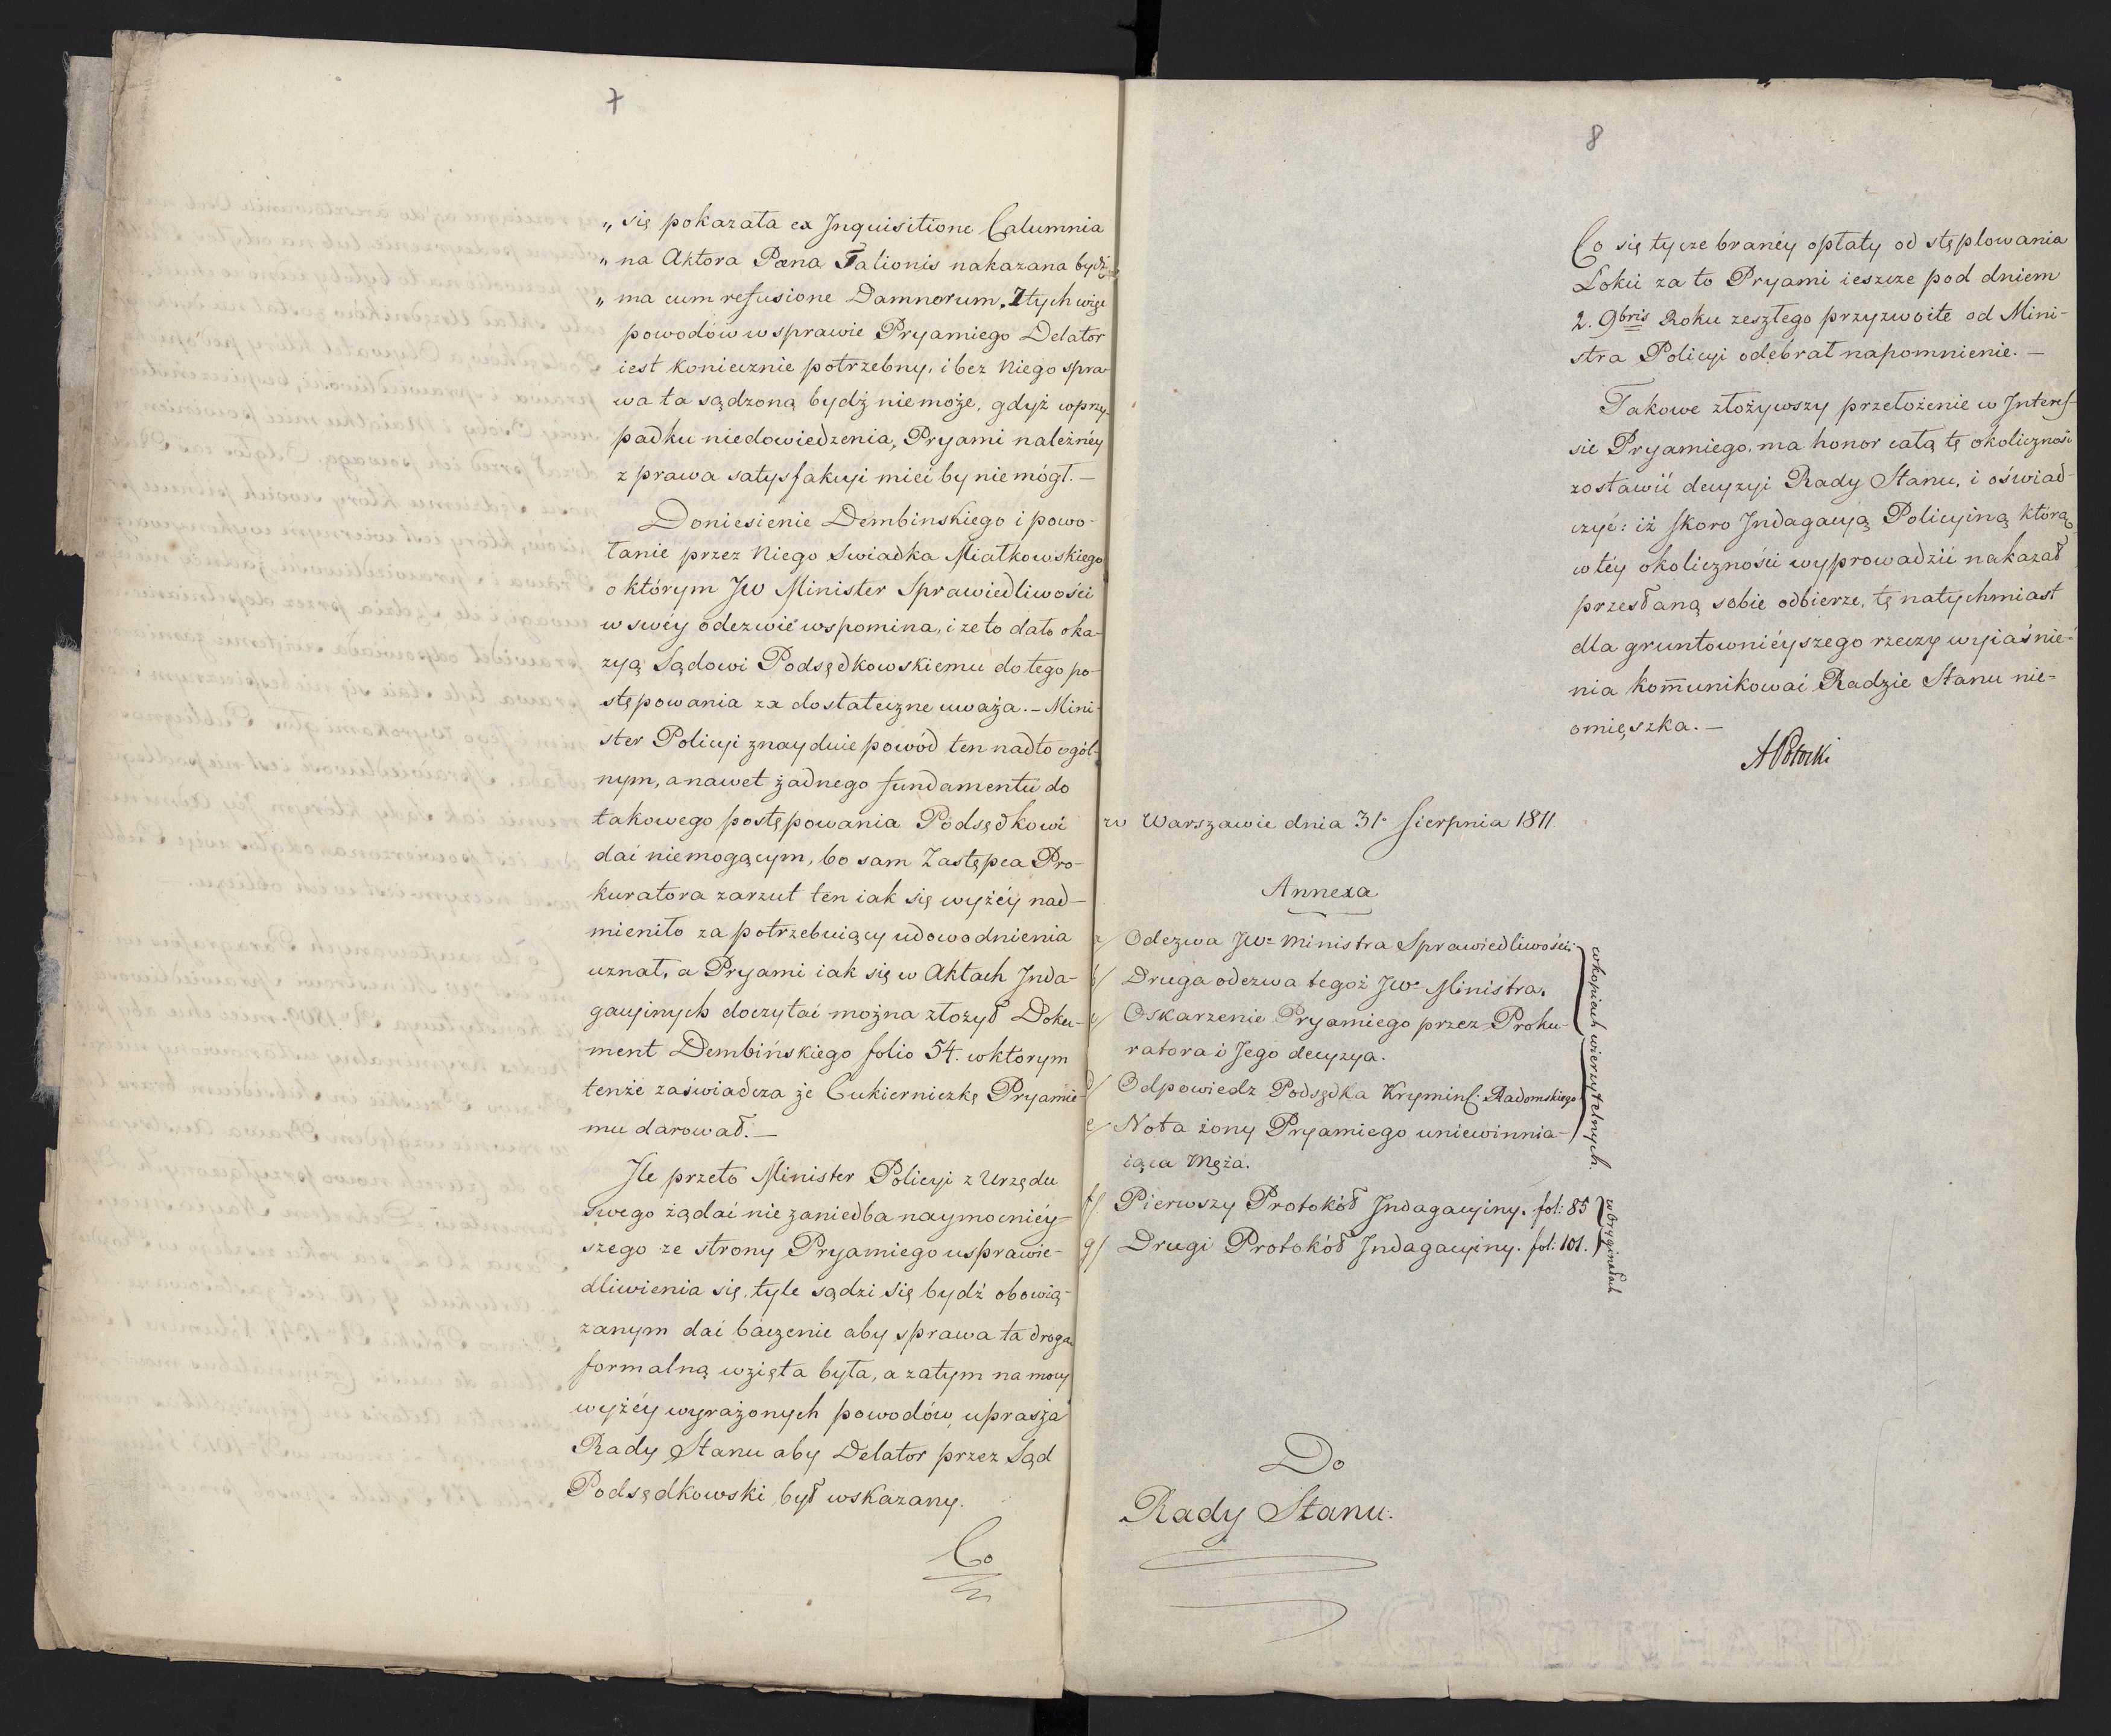 7
„ się pokazała ex Inquisitione Calumnia
„ na Aktora Pœna Talionis nakazana bydź
„ ma cum refusione Damnorum. Z tych więc
powodów w sprawie Pryamiego Delator
iest koniecznie potrzebny, i bez Niego spra-
wa ta sądzoną bydź nie może, gdyż w przy-
padku niedowiedzenia, Pryami należnéy
z prawa satysfakcyi mieć by nie mógł. —
Doniesienie Dembinskiego i powo-
łanie przez Niego Swiadka Miałkowskiego
o którym JW Minister Sprawiedliwości
w swéy odezwie wspomina, i że to dało oka-
zyą Sądowi Podsędkowskiemu do tego po-
stępowania za dostateczne uważa. — Mini-
ster Policyi znayduie powód ten nadto ogól-
nym, a nawet żadnego fundamentu do
takowego postępowania Podsędkowi
dać niemogącym, bo sam Zastępca Pro-
kuratora zarzut ten iak się wyżéy nad-
mieniło za potrzebuiący udowodnienia
uznał, a Pryami iak się w Aktach Inda-
gacyinych doczytać można złożył Doku-
ment Dembińskiego folio 54. w którym
tenże zaświadcza że Cukierniczkę Pryamie-
mu darował. —
Ile przeto Minister Policyi z Urzędu
Swego żądać nie zaniedba naymocniéy-
szego ze strony Pryamiego usprawie-
dliwienia się, tyle sądzi się bydź obowią-
zanym dać baczenie aby sprawa ta drogą
formalną wzięta była, a zatym na mocy
wyżéy wyrażonych powodów, uprasza
Rady Stanu aby Delator przez Sąd
Podsędkowski był wskazany.
Co
8
Co się tycze branéy opłaty od stęplowania
Łokci za to Pryami ieszcze pod dniem
2. 9bris Roku zeszłego przyzwoite od Mini-
stra Policyi odebrał napomnienie. —
Takowe złożywszy przełożenie w Interes-
sie Pryamiego, ma honor całą tę okoliczność
zostawić decyzyi Rady Stanu, i oświad-
czyć: iż skoro Indagacyą Policyiną którą
w téy okoliczności wyprowadzić nakazał
przesłaną sobie odbierze, tę natychmiast
dla gruntowniéyszego rzeczy wyiaśnie-
nia kom̄unikować Radzie Stanu nie-
omięszka. —
APotocki
w Warszawie dnia 31. Sierpnia 1811.
Annexa
a/ Odezwa JW. Ministra Sprawiedliwości.
b/ Druga odezwa tegoż JW. Ministra.
c/ Oskarzenie Pryamiego przez Proku-
ratora i Jego decyzya.
d/ Odpowiedz Podsędka Kryminl: Radomskiego
e/ Nota żony Pryamiego uniewinnia-
iąca Męża.
w kopiach wierzytelnych.
f/ Pierwszy Protokół Indagacyiny. fol: 85
g/ Drugi Protokół Indagacyiny. fol: 101.
w Oryginałach
Do
Rady Stanu.